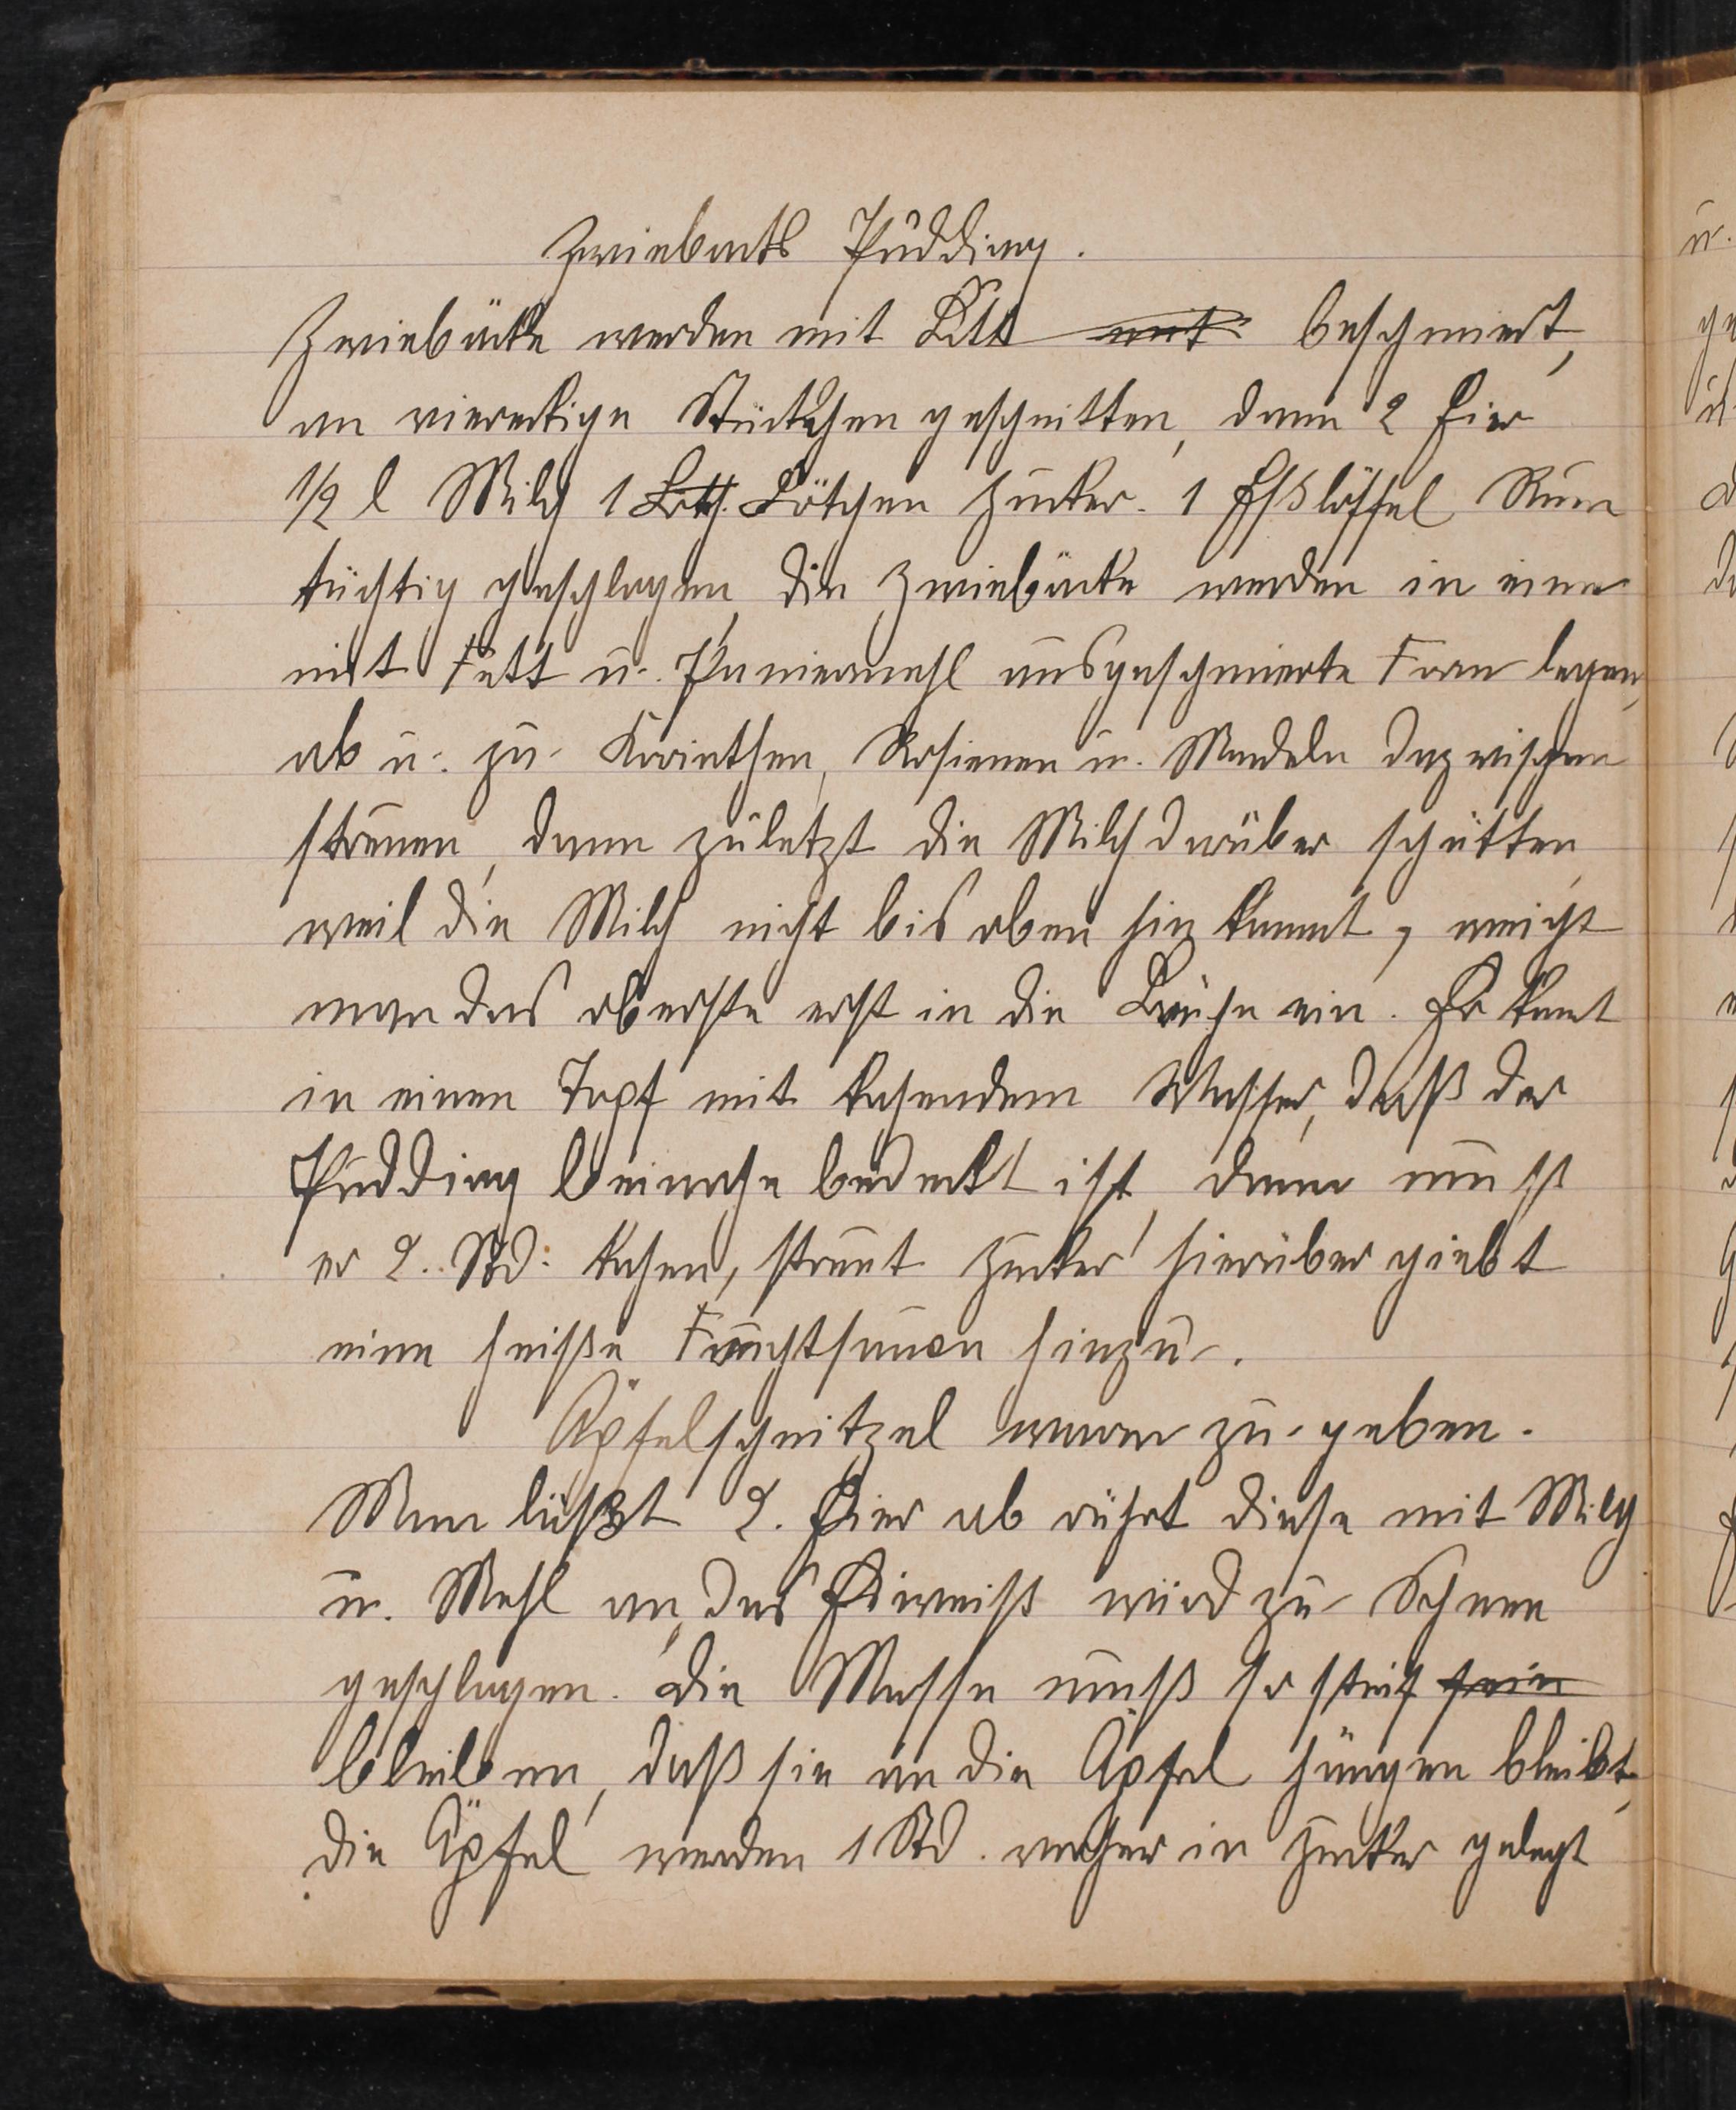 Zwiebacks Pudding.
Zwiebäcke werden mit ~~mit~~ beschmiert,
an viereckige Stückchen geschnitten, dann 2 Eier
1/2 l Milch 1 ~~Loth.~~ Lötchen Zucker. 1 Eßlöffel Rum
tüchtig geschlagen, die Zwiebäcke werden in eine
mit Fett u. Paniermehl ausgeschmierte Form legen,
ab u. zu Korinthen, Rosienen u. Mandeln dazwischen
streuen, dann zuletzt die Milch darüber schütten,
weil die Milch nicht bis oben hin kommt, weicht
man das oberste erst in die Brühe ein. Er komt
in einen Topf mit kohendem Wasser, daß der
Pudding beinahe bedeckt ist, dann muß
er 2. Std. kohen, streut Zucker hierüber giebt
eine heiße Fruchtsauce hinzu.
Äpfelschnitzel warm zu geben.
Man läßt 2. Eier ab rührt diese mit Milch
u. Mehl an, das Eiweiß wird zu Schnee
geschlagen. Die Masse muß so steif ~~sein~~
bleiben, daß sie an die Äpfel hängen bleibt,
die Äpfel werden 1 Std. vorher in Zucker gelegt